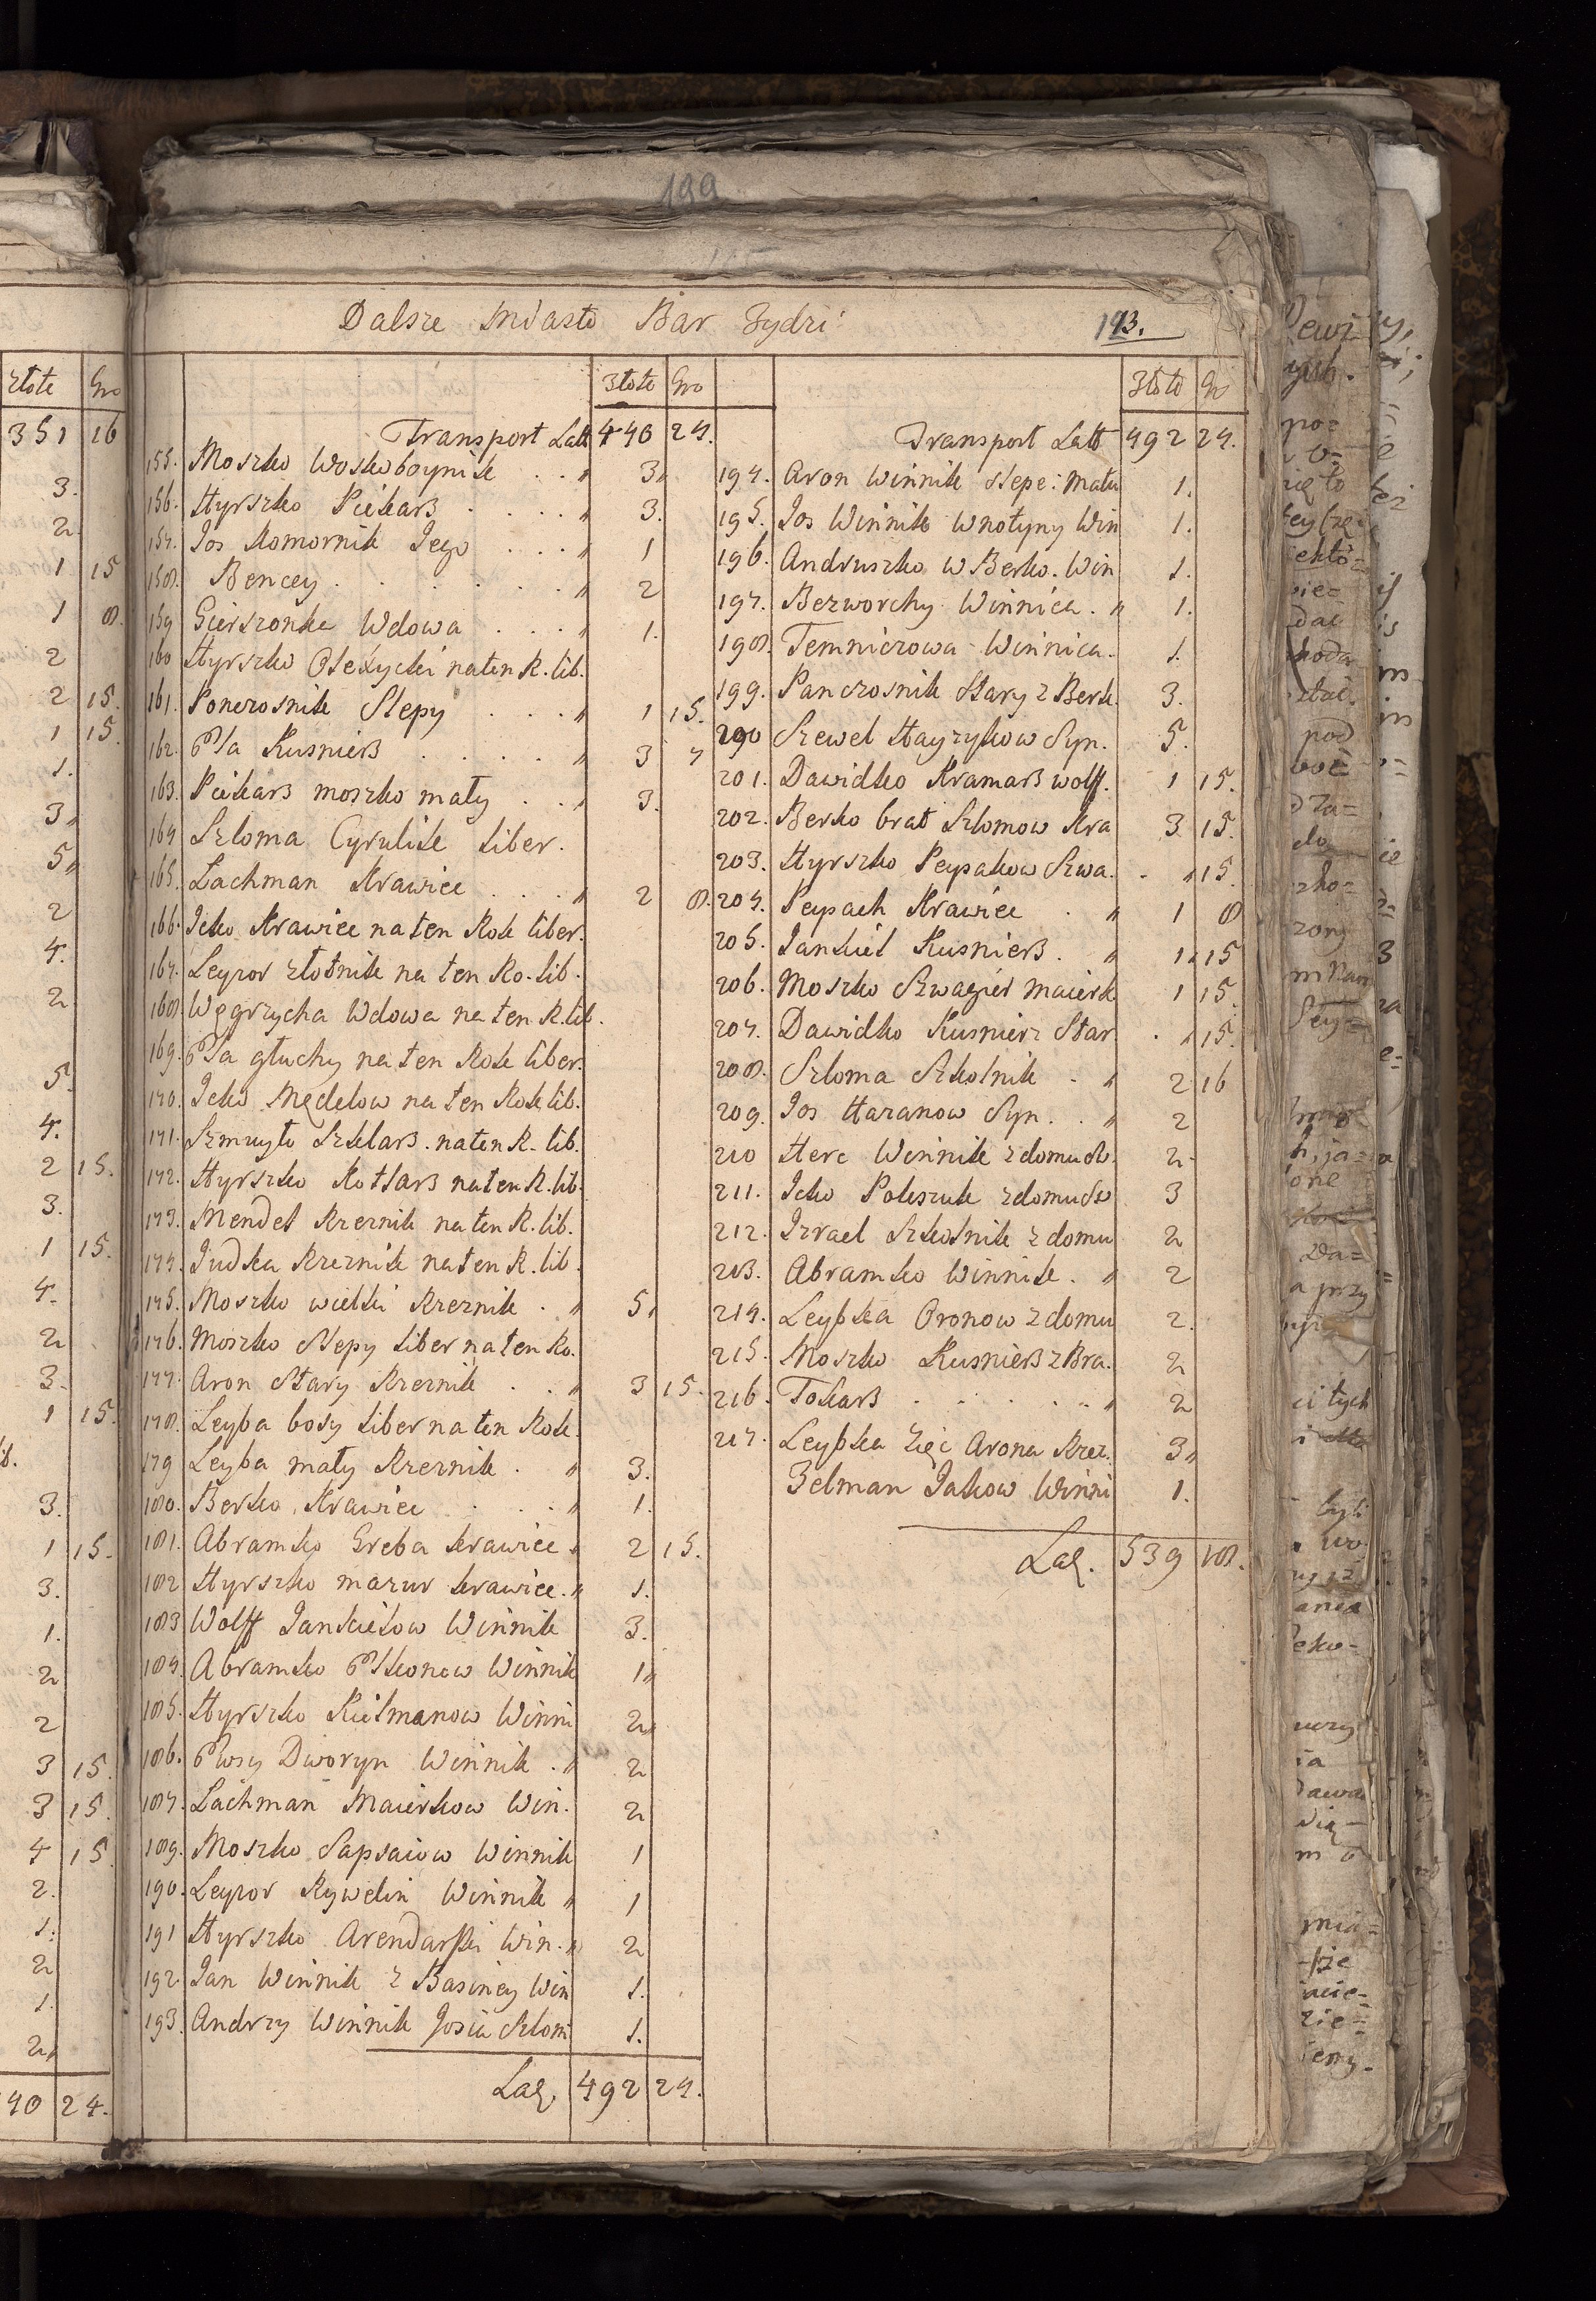 199
Dalsze Miasto Bar Zydzi
193.
złote Gro
351 16
3.
2
1 15
1 8.
2
2 15.
1 15.
1.
3
5
2
4.
2
5.
4.
2 15.
3.
1 15.
4.
2
3.
1 15.
3.
1 15.
3.
1.
2
2
3 15.
3 15.
4 15.
2.
1.
2
1.
2
40 24.
Złote Gro
Transport Latt 440 24.
155. Moszko Woskoboynik . . „ 3
156. Hyrszko Piekarz . . . . „ 3.
157. Jos Komornik Jego . . . „ 1
158. Bencey . . . . . „ 2
159 Gierszonka Wdowa . . . „ 1.
160 Hyrszko Olexycki na ten R. lib.
161. Ponczosnik Slepy . . . „ 1 15.
162. Psa Kusnierz . . . . „ 3 7
163. Piekarz moszko mały . . „ 3.
164 Szloma Cyrulik liber.
165. Lachman Krawiec . . . „ 2 8.
166. Icko Krawiec na ten Rok liber.
167. Leyzor złotnik na ten Ro. lib.
168 Węgrzycha Wdowa na ten R. lib.
169. Psa głuchy na ten Rok liber.
170. Icko Mędelow na ten Rok lib.
171. Szmuyło Szklarz na ten R. lib.
172. Hyrszko Kotlarz na ten R. lib.
173. Mendel Rzeznik na ten R. lib.
174. Judka Rzeznik na ten R. lib.
175. Moszko wielki Rzeznik . „ 5
176. Moszko Slepy liber na ten Ro.
177. Aron Stary Rzeznik . . „ 3 15.
178. Leyba bosy liber na ten Rok.
179 Leyba mały Rzeznik . „ 3.
180. Berko Krawiec . . . „ 1.
181. Abramko Greba krawiec „ 2 15.
182 Hyrszko mazur krawiec. „ 1.
183 Wolff Jankielow Winnik 3.
184. Abramko Winnik 1
185. Hyrszko Kielmanow Winni 2
186. Dworyn Winnik . „ 2
187. Lachman Maierkow Win. 2
189. Moszko Sapsaiow Winnik 1
190. Leyzor Rywelin Winnik „ 1
191 Hyrszko Arendarski Win. „ 2
192. Jan Winnik z Basiney Win 1.
193. Andrzy Winnik Josia Szlom 1.
Laq. 492 24.
Złote Gr
Transport Latt 492 24.
194. Aron Winnik slepe: Matu 1.
195. Jos Winnik Wnotyny Win 1.
196. Andruszko w Berko. Win 1.
197. Bezworchy Winnica . „ 1.
198. Temniczowa Winnica. 1.
199. Panczosnik Stary z Berk. 3.
200 Szewel Hayzykow Syn. 5.
201. Dawidko Kramarz wolff. 1 15.
202. Berko brat Szlomow Kra 3 15.
203. Hyrszko Peysakow Szwa. . „ 15.
204. Peysach Krawiec . „ 1 8
205. Jankiel Kusnierz . „ 1 15
206. Moszko Szwagier maierk 1 15.
207. Dawidko Kusnierz Star . „ 15.
208. Szloma Szkolnik . „ 2 16
209. Jos Haranow Syn . . „ 2
210 Herc Winnik z domu 2
211. Icko Poleszuk z domu 3
212. Izrael Szkolnik z domu 2
213. Abramko Winnik . „ 2
214. Leybka Oronow z domu 2.
215. Moszko Kusnierz z Bra. 2
216. Tokarz . . . . . „ 2
217. Leybka Zięc Arona Rzez. 3
Zelman Jakow Winni 1.
Laq. 539 18.